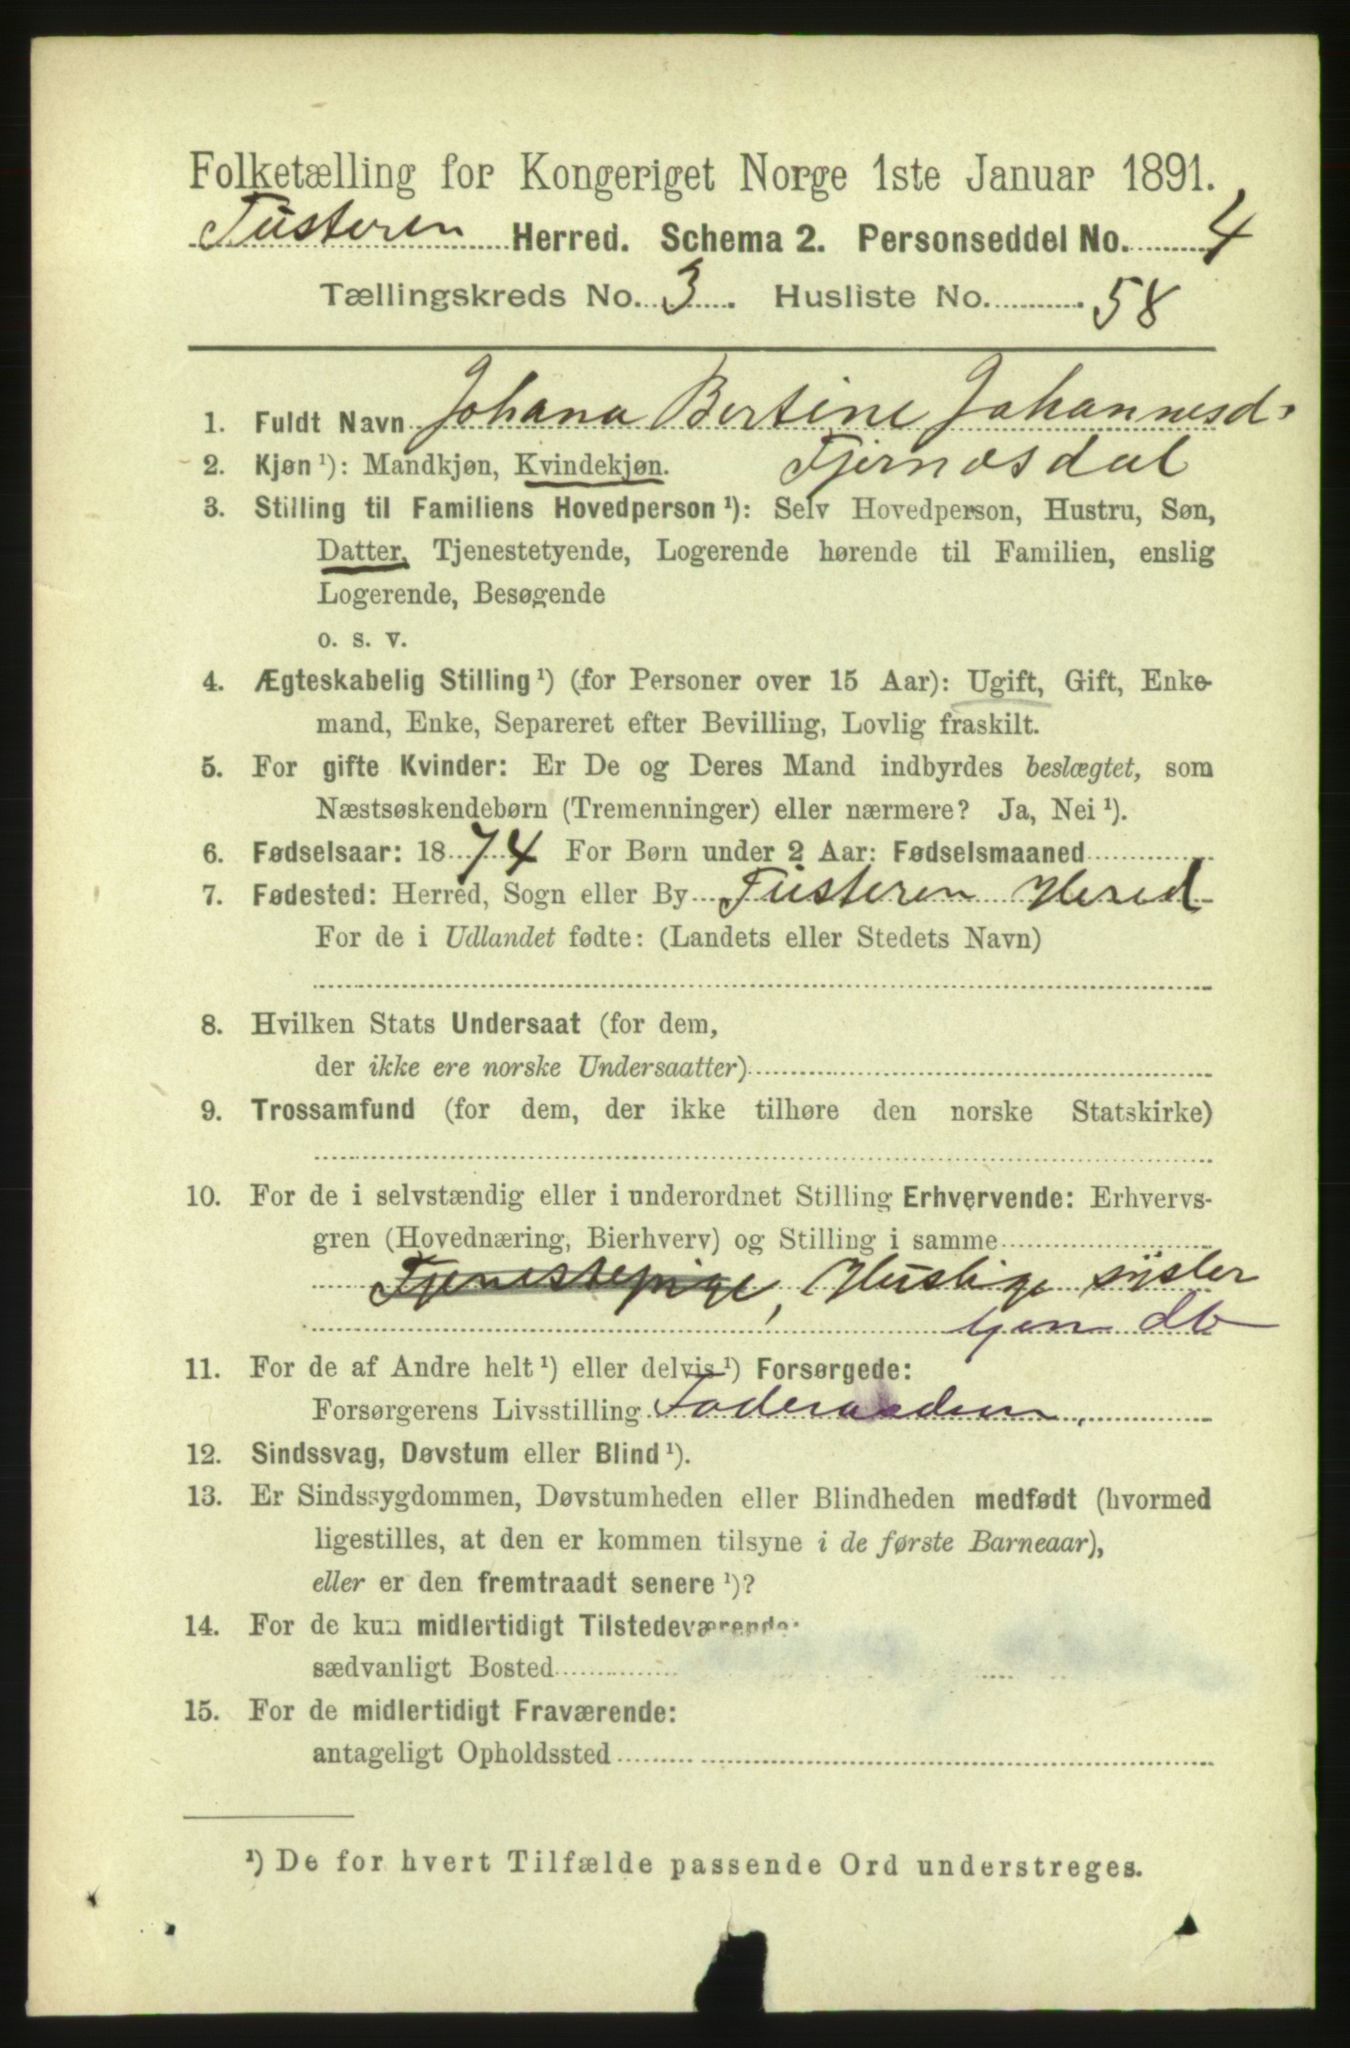 Folketælling for Kongeriget Norge 1ste Januar 1891.
Tusteren Herred. Schema 2. Personseddel No. 4
Tællingskreds No. 3. Husliste No. 58
1. Fuldt Navn Johana Bertine Johannesd.
2. Kjøn ¹): Mandkjøn, Kvindekjøn. Tjernæsdal
3. Stilling til Familiens Hovedperson ¹): Selv Hovedperson, Hustru, Søn,
Datter, Tjenestetyende, Logerende hørende til Familien, enslig
Logerende, Besøgende
o. s. v.
4. Ægteskabelig Stilling ¹) (for Personer over 15 Aar): Ugift, Gift, Enke-
mand, Enke, Separeret efter Bevilling, Lovlig fraskilt.
5. For gifte Kvinder: Er De og Deres Mand indbyrdes beslægtet, som
Næstsøskendebørn (Tremenninger) eller nærmere? Ja, Nei ¹).
6. Fødselsaar: 1874 For Børn under 2 Aar: Fødselsmaaned
7. Fødested: Herred, Sogn eller By Tusteren Hered
For de i Udlandet fødte: (Landets eller Stedets Navn)
8. Hvilken Stats Undersaat (for dem,
der ikke ere norske Undersaatter)
9. Trossamfund (for dem, der ikke tilhøre den norske Statskirke)
10. For de i selvstændig eller i underordnet Stilling Erhvervende: Erhvervs-
gren (Hovednæring, Bierhverv) og Stilling i samme
Tjenestepige, Huslige sÿsler
11. For de af Andre helt ¹) eller delvis ¹) Forsørgede:
Forsørgerens Livsstilling
12. Sindssvag, Døvstum eller Blind ¹).
13. Er Sindssygdommen, Døvstumheden eller Blindheden medfødt (hvormed
ligestilles, at den er kommen tilsyne i de første Barneaar),
eller er den fremtraadt senere ¹)?
14. For de kun midlertidigt Tilstedeværende:
sædvanligt Bosted
15. For de midlertidigt Fraværende:
antageligt Opholdssted
¹) De for hvert Tilfælde passende Ord understreges.